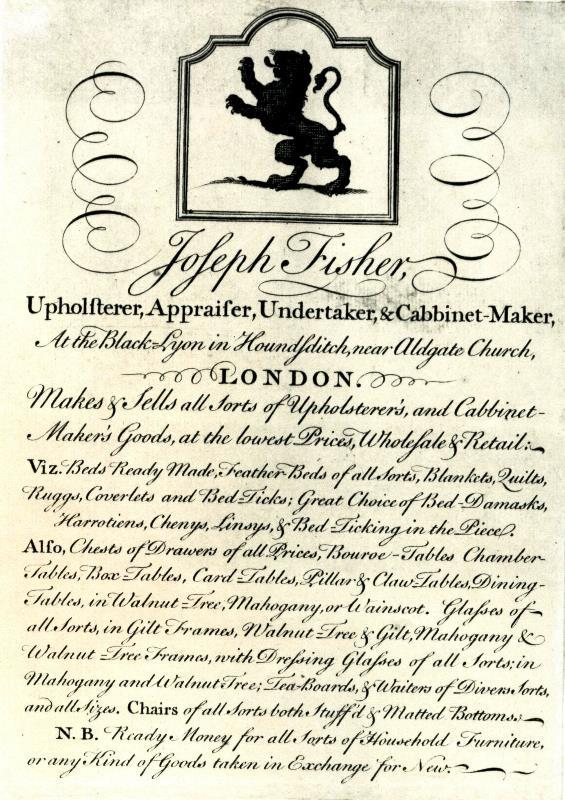 Joſeph Fisher,
Upholſterer, Appraiſer, Undertaker, & Cabbinet-Maker,
At the Black-Lyon in Houndſditch, near Aldgate Church,
LONDON.
Makes & Sells all Sorts of Upholsterer's, and Cabbinet-
Maker's Goods, at the lowest Prices, Wholeſale & Retail:
Viz. Beds Ready Made, Feather Beds of all Sorts, Blankets, Quilts,
Ruggs, Coverlets and Bed-Ticks; Great Choice of Bed-Damasks,
Harrotiens, Chenys, Linsys, & Bed-Ticking in the Piece.
Alſo, Chests of Drawers of all Prices, Bouroe-Tables Chamber-
Tables, Box-Tables, Card-Tables, Pillar & Claw Tables, Dining-
Tables, in Walnut-Tree, Mahogany, or Wainscot. Glaſses of
all Sorts, in Gilt Frames, Walnut-Tree & Gilt, Mahogany &
Walnut-Tree Frames, with Dreſsing Glaſses of all Sorts; in
Mahogany and Walnut Tree; Tea-Boards, & Waiters of Divers Sorts,
and all Sizes. Chairs of all Sorts both Stuff'd & Matted Bottoms.
N.B. Ready Money for all Sorts of Household Furniture,
or any Kind of Goods taken in Exchange for New.